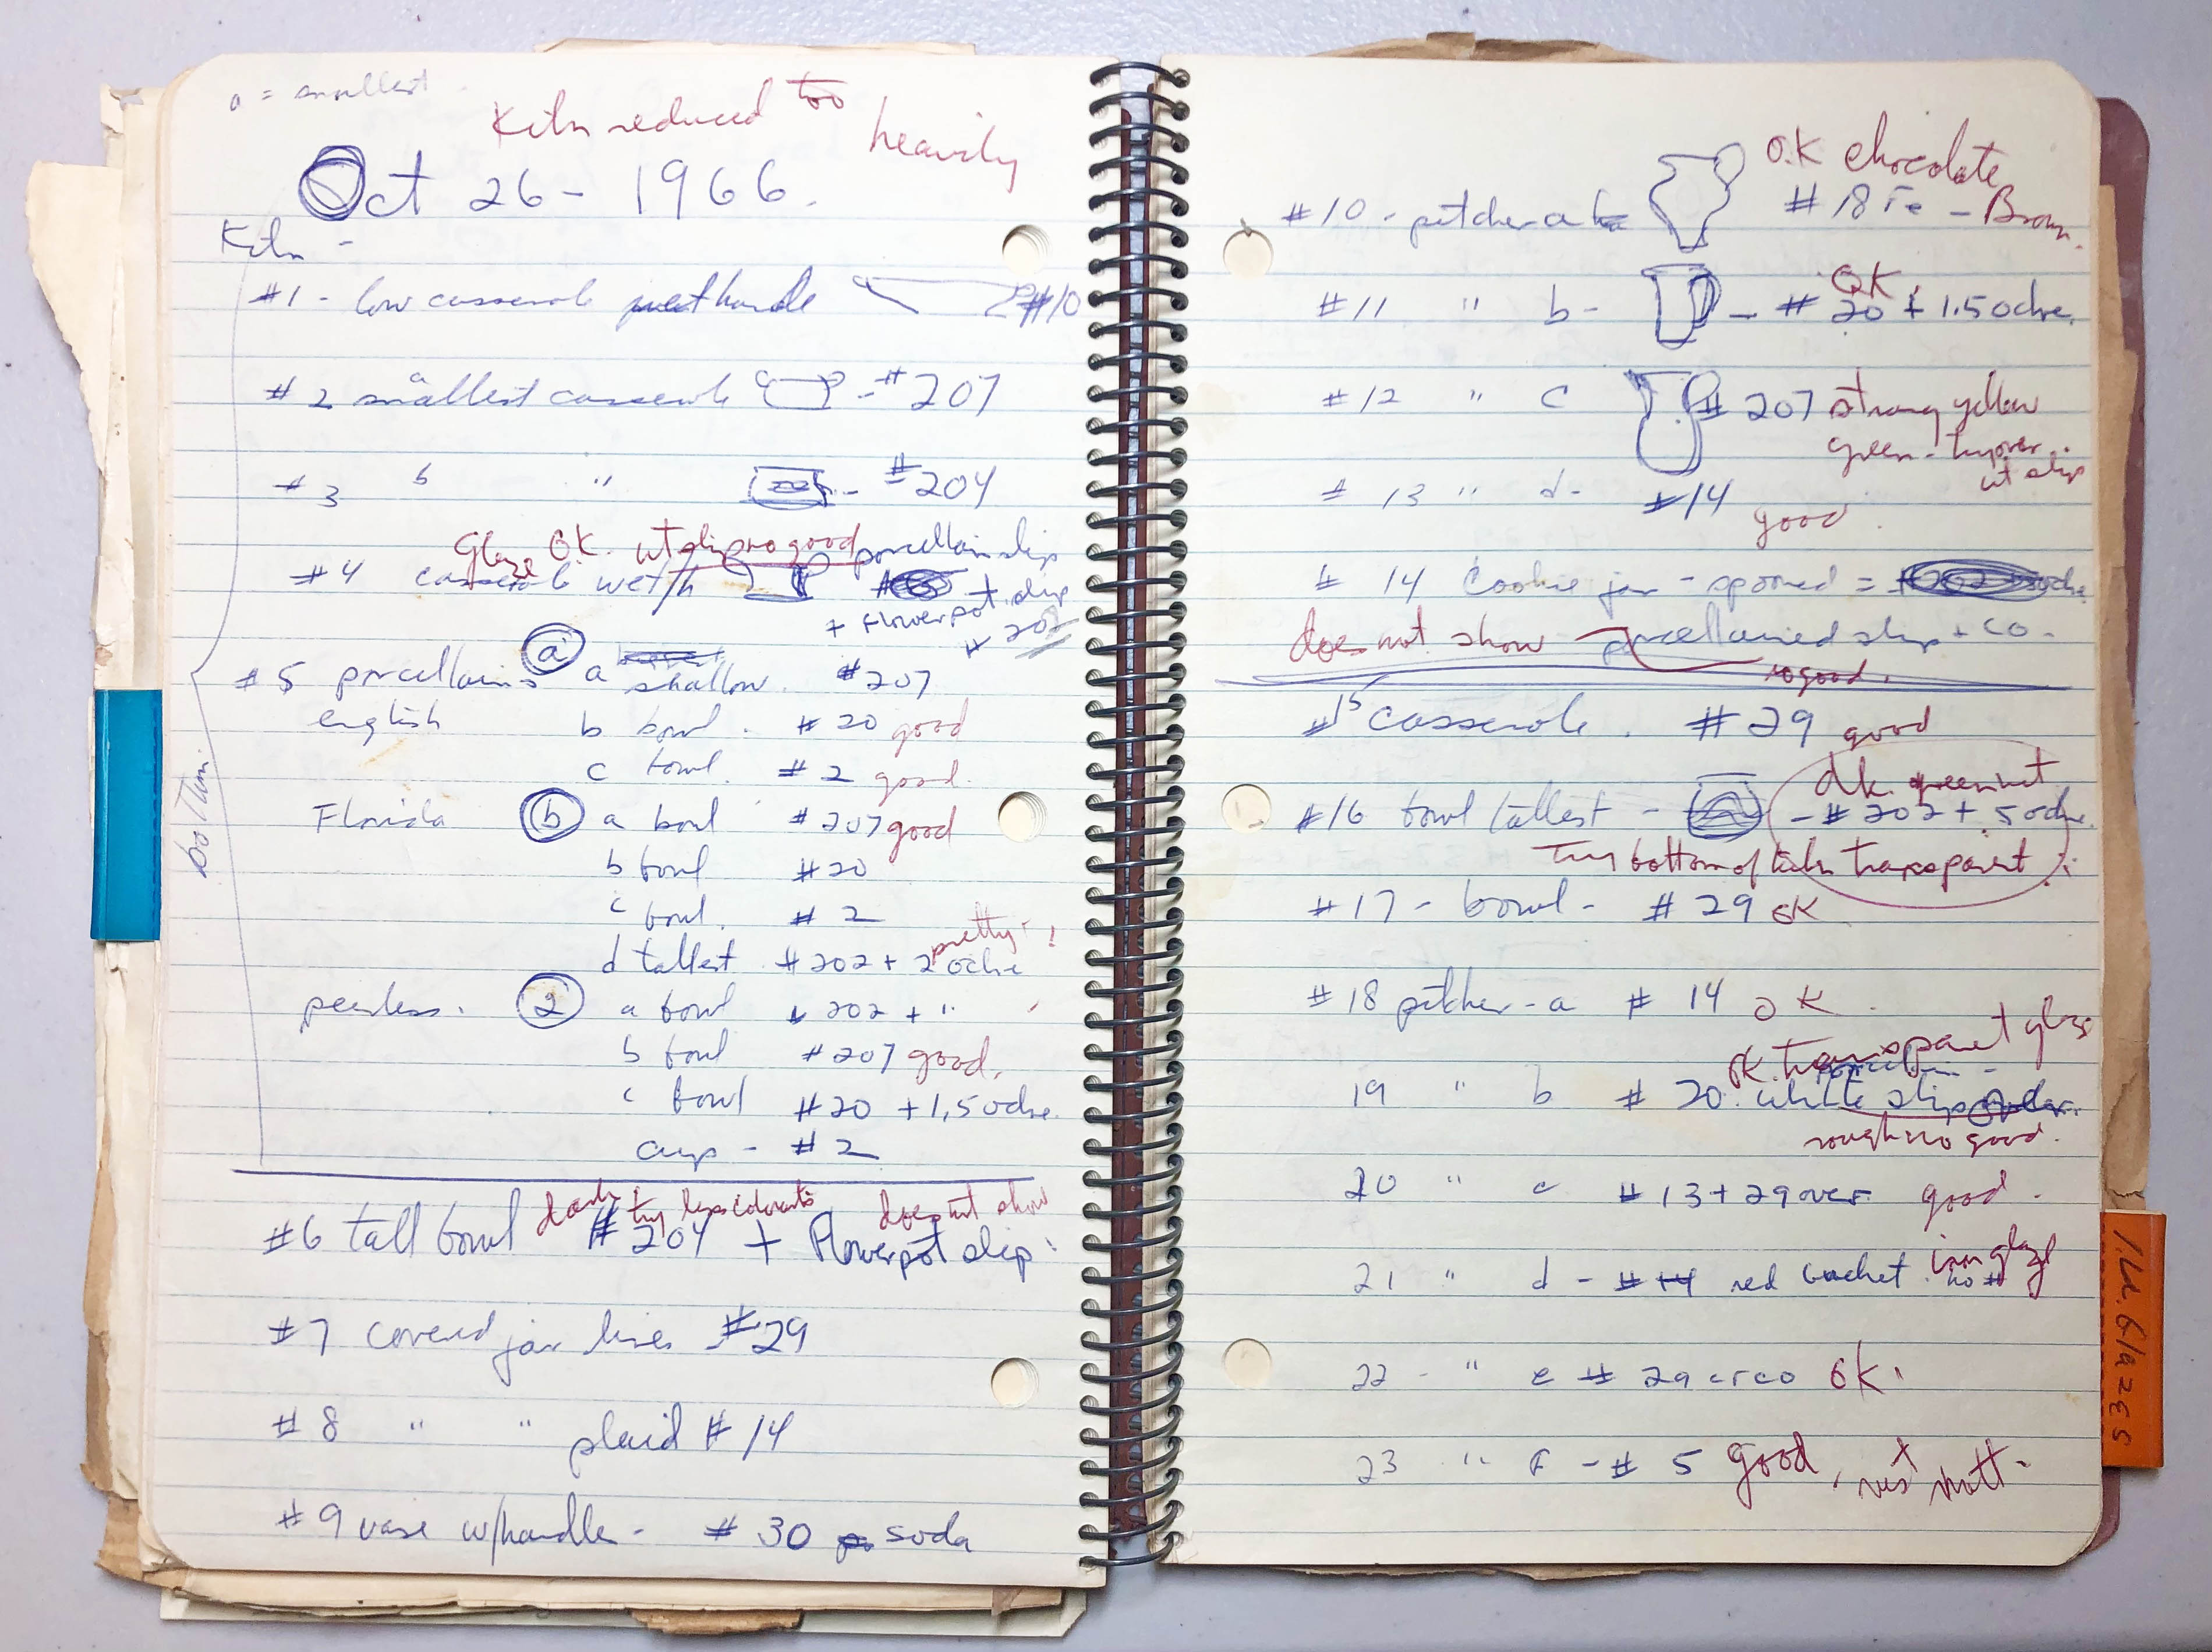 a = smallest
Kiln reduced too heavily
Oct 26 - 1966.
Kiln -
#1 - low casserole handle #10
#2 a smallest casserole - #207
#3 b " - #204
Glaze O.K. wt slip no good porcellain slip
#4 casserole + Flowerpot slip
# 202
#5 porcellains (a) a shallow. #207
english b bowl. #20 good
c bowl. #2 good.
Florida (b) a bowl #207 good
b bowl #20
c bowl. #2
pretty!
d tallest #202 + 2 ochre
peerless. (2) a bowl 202 + "
b bowl #207 good.
c bowl #20 + 1.5 ochre.
cup - #2
bottom.
dark try less colorants does not show
#6 tall bowl #204 + Flowerpot slip.
#7 covered jar lines #29
#8 " " plaid #14
#9 vase w/handle - #30 soda
O.K chocolate
#10 - pitcher a #18 Fe - Brown.
OK.
#11 " b - - #20 + 1.5 ochre.
#12 " c #207 strong yellow
green - try over
wt slip
#13 " d - #14
good.
#14 Cookie jar - spooned =
does not show porcellained slip + co.
no good.
#15 casserole. #29 good
dk. green wet
#16 bowl tallest - - #202 + 5 ochre.
Try bottom of kiln transparent.
#17 - bowl - #29 OK
#18 pitcher - a #14 OK.
OK. transparent glaze
19 " b #20. white slip
rough no good.
20 " c #13 + 29 over. good.
iron glaze
21 " d - #14 red bucket. no #
22 - " e #29 crco OK.
23 " F - #5 good,